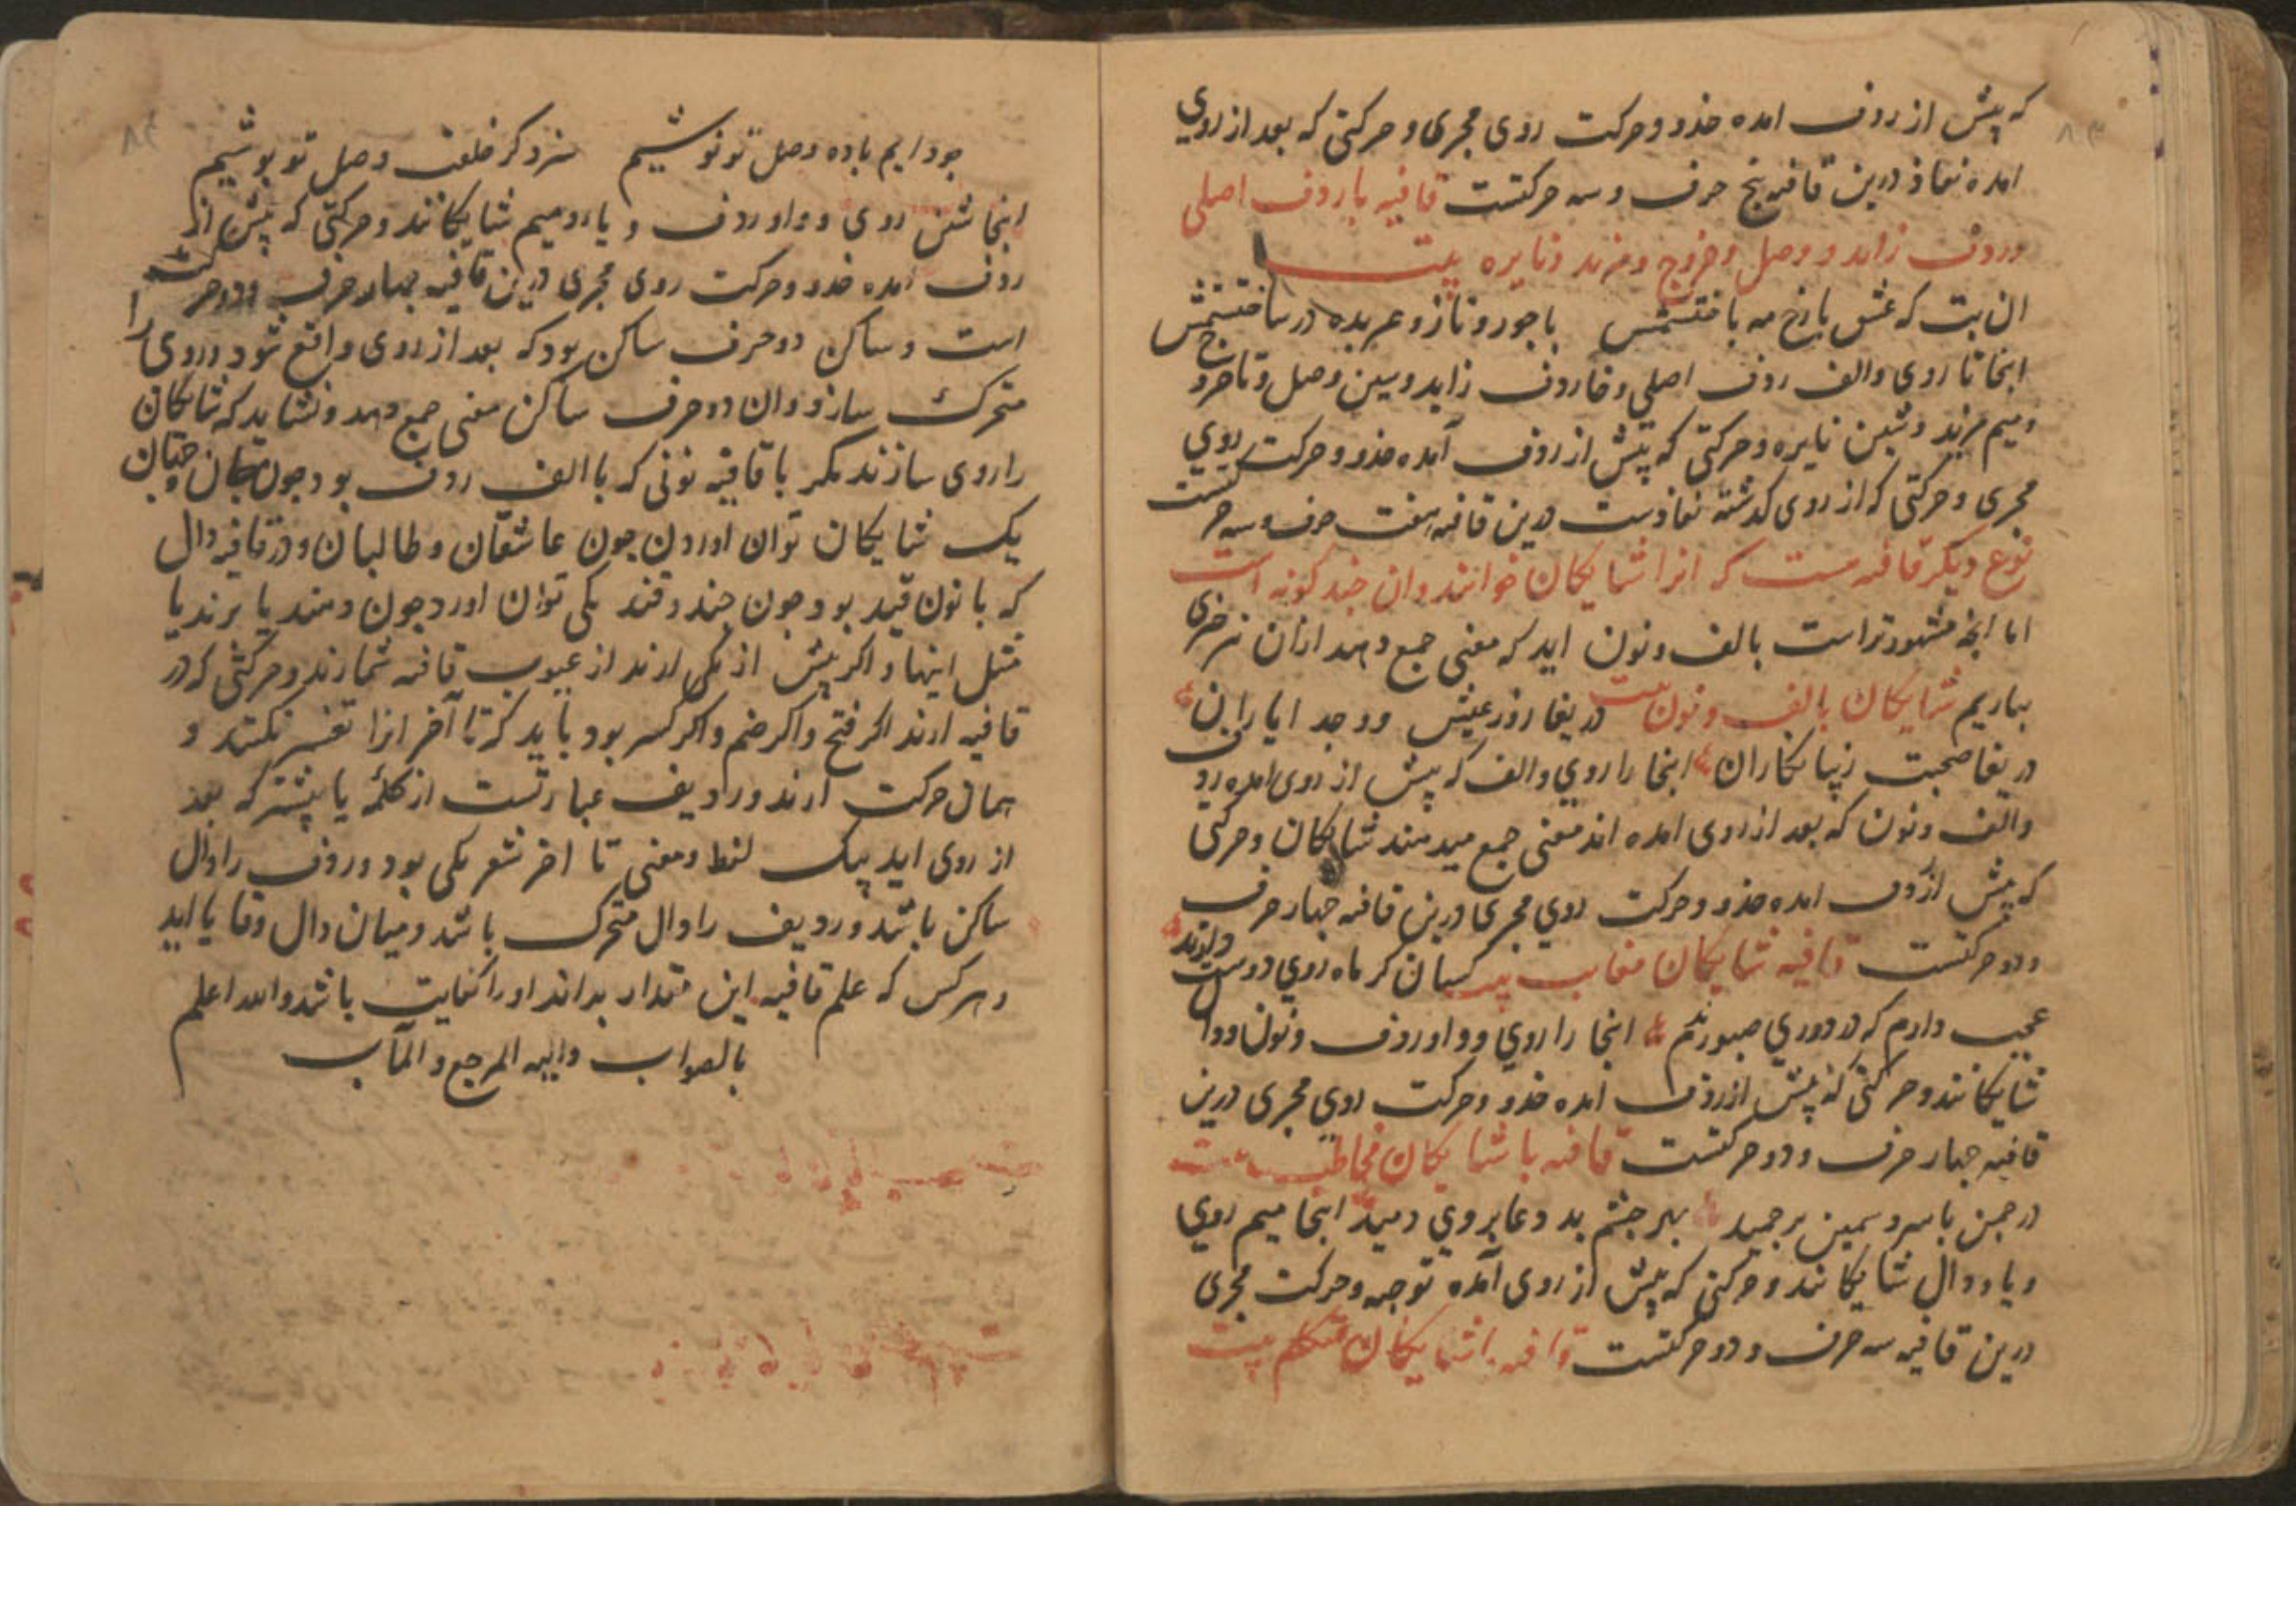 که پیش از ردف امده حذو و حرکت روی مجری و حرکتی که بعد از روی
امده نفاذ درین قافیه پنج حرف و سه حرکتست قافیه با ردف اصلی
وردف زاید و وصل و خروج و مزید و نایره بیت
ان بت که عشق با رخ مه باختستمش با جور و ناز و عربده در ساختستمش
اینجا تا روی والف ردف اصلی و خا ردف زاید و سین وصل و تا خرو ج
و میم مزید و شین نایره و حرکتی که پیش از ردف آمده حذو و حرکت روی
مجری و حرکتی که از روی کدشته نفاذست درین قافیه هفت حرف و سه حر کتست
نوع دیکر قافیه هست که انرا شایکان خوانند وان چند کونه است
اما انچه مشهورتر است بالف و نون اید که معنی جمع دهد ازان نیز حرفی
بیاریم شایکان بالف و نون بیت دریغا روز عیش و وجد ایاران
دریغا صحبت زیبا نکاران اینجا را روی والف که پیش از روی امده رد ف
والف و نون که بعد از روی امده اند معنی جمع میدهند شایکان و حرکتی
که پیش از ردف امده حذو و حرکت روی مجری درین قافیه چهار حرف
و دو حرکتست قافیه شایکان مغایب بیت کسان کز ماه روی دوست دورند
عجب دارم که در دوری صبورند اینجا را روی و واو ردف و نون و دال
شایکانند و حرکتی که پیش از ردف امده حذو و حرکت روی مجری درین
قافیه چهار حرف و دو حرکتست قافیه با شایکان مخاطب بیت
در چمن با سرو سیمین برچمید بهر چشم بد دعا بر وی دمید اینجا میم روی
و یا و دال شایکانند و حرکتی که پیش از روی آمده توجیه و حرکت مجری
درین قافیه سه حرف و دو حرکتست قافیه با شایکان متکلم بیت
جو دایم باده وصل تو نوشیم سزد کر خلعت وصل تو بوشیم
اینجا شین روی و واو ردف و یا و میم شایکانند و حرکتی که پیش از
ردف امده حذو و حرکت روی مجری درین قافیه چهار حرف و دو حر کت
است و ساکن دو حرف ساکن بود که بعد از روی واقع شود و روی را
متحرک سازد و ان دو حرف ساکن معنی جمع دهد و نشاید که شایکان
را روی سازند مکر با قافیه نونی که با الف ردف بود چون جان و جنان
یک شایکان توان اوردن چون عاشقان و طالبان و در قافیه دال
که با نون قید بود چون چند و قند یکی توان اورد چون دهند یا برند یا
مثل اینها و اکر بیش از یکی ارند از عیوب قافیه شمارند و حرکتی که در
قافیه ارند اکر فتح واکر ضم واکر کسر بود باید که تا آخر انرا تغییر نکنند و
همان حرکت ارند و ردیف عبارتست از کلمه یا بیشتر که بعد
از روی اید بیک لفظ و معنی تا اخر شعر یکی بود و ردف را دال
ساکن باشد و ردیف را دال متحرک باشد و میان دال و فا یا اید
و هر کس که علم قافیه این مقدار بداند او را کفایت باشد والله اعلم
بالصواب والیه المرجع والمآب